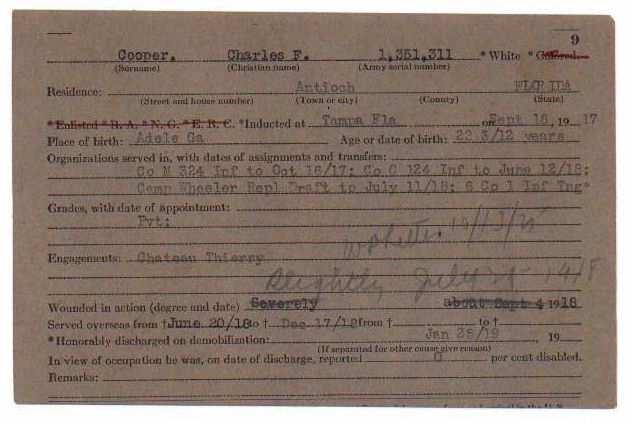 9
Cooper, Charles F. 1,351,311 * White * Colored.
(Surname) (Christian name) (Army serial number)
Residence: Antioch FLORIDA
(Street and house number) (Town or city) (County) (State)
* Enlisted * R. A. * N. G. * E. R. C. * Inducted at Tampa Fla on Sept 18, 19 17
Place of birth: Adele Ga Age or date of birth: 22 3/12 years
Organizations served in, with dates of assignments and transfers:
Co M 324 Inf to Oct 16/17; Co C 124 Inf to June 12/18;
Camp Wheeler Repl Draft to July 11/18; 6 Co 1 Inf Tng*
Grades, with date of appointment:
Pvt;
Engagements: Chateau Thierry
Slightly July 1918
Wounded in action (degree and date) Severely about Sept 4 1918
Served overseas from † June 20/18 to † Dec 17/18 from † to †
* Honorably discharged on demobilization: Jan 28/19 , 19
(If separated for other cause give reason)
In view of occupation he was, on date of discharge, reported 0 per cent disabled.
Remarks: